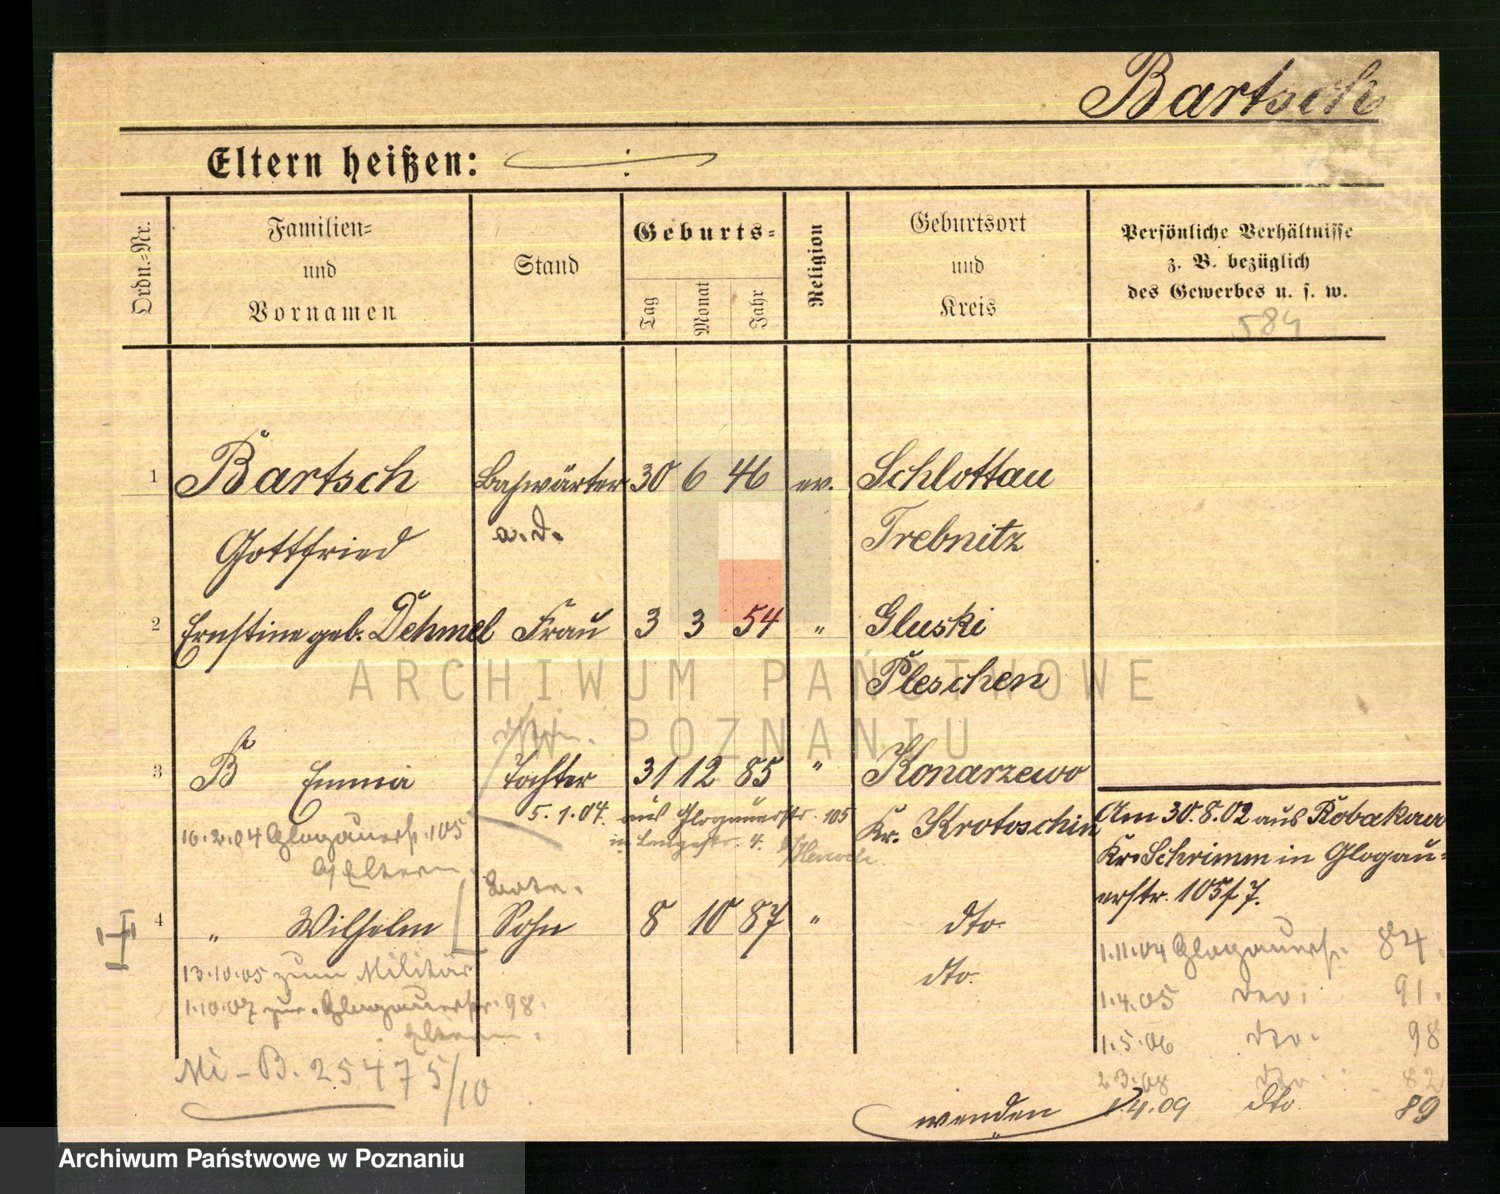 Bartsch
Eltern heißen:
Ordn.-Nr.
Familien-
und
Vornamen
Stand
Geburts-
Tag
Monat
Jahr
Religion
Geburtsort
und
Kreis
Persönliche Verhältnisse
z. B. bezüglich
des Gewerbes u. s. w.
584
1 Bartsch Bahwärter 30 6 46 ev. Schlottau
Gottfried a. d. Trebnitz
2 Ernstine geb. Dehmel Frau 3 3 54 " Gluski
Pleschen
3 B Emma Tochter 31 12 85 " Konarzewo
5.1.04. aus Glogauerstr. 105
in Langestr. 4.
Kr. Krotoschin
16.2.04 Glogauerstr. 105
Eltern
Am 30.8.02 aus Robakau
Kr. Schrimm in Glogau-
erstr. 105 f 7.
4 " Wilhelm Sohn 8 10 87 " dto.
dto.
13.10.05 zum Militär
1.10.07 zur. Glogauerstr. 98.
Eltern.
Mi-B. 25475/10
1.11.04 Glogauerstr. 84.
1.4.05 dto. 91.
1.5.06 dto. 98
2.3.08 dto. 82
1.4.09 dto. 89
wenden
ARCHIWUM PAŃSTWOWE
W POZNANIU
Archiwum Państwowe w Poznaniu